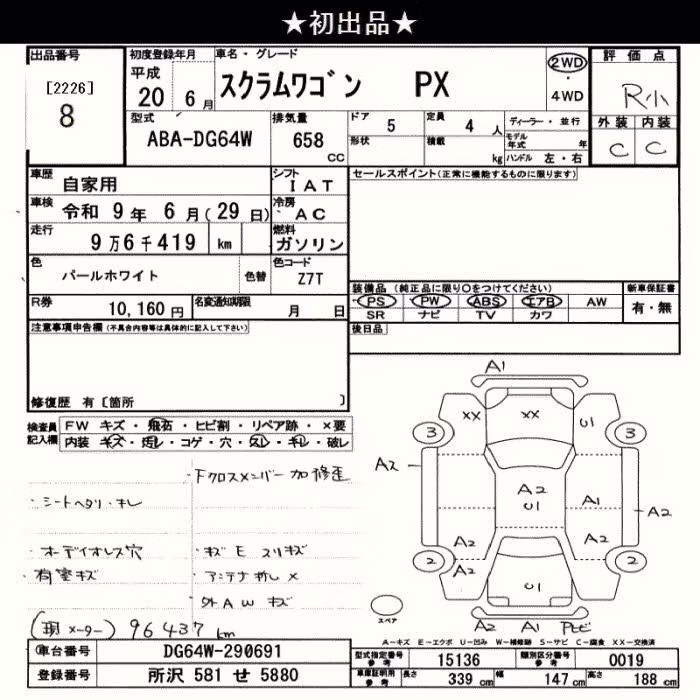 ★初出品★
出品番号
[2226]
8
初度登録年月
平成
20 6月
車名・グレード
スクラムワゴン PX
2WD
・
4WD
評価点
R小
外装 内装
C C
型式
ABA-DG64W
排気量
658
CC
ドア 5
形状
定員 4 人
積載 kg
ディーラー・並行
モデル年式 年
ハンドル 左・右
車歴
自家用
シフト
IAT
車検 令和 9年 6月(29日)
冷房
AC
走行
9万6千419 km
燃料
ガソリン
色
パールホワイト
色替
色コード
Z7T
R券
10,160円
名変通知期限
月 日
セールスポイント(正常に機能するものに限ります)
装備品(純正品に限り○をつけてください)
PS PW ABS エアB AW
SR ナビ TV カワ
新車保証書
有・無
後日品
注意事項申告欄(不具合内容等は具体的に記入して下さい)
修復歴 有〔箇所 〕
検査員記入欄
FW キズ・飛石・ヒビ割・リペア跡・×要
内装 キズ・汚れ・コゲ・穴・スレ・キレ・破レ
・下クロスメンバー加修歪
・シートヘタリ・キレ
・オーディオレス穴
・キズ E スリキズ
・荷室キズ
・アンテナ折レ ×
・外AWキズ
(現メーター) 96437 km
A1
XX XX U1
3 3
A2
A2
U1
A1
A2
A2 A2
2 A2 2
U1
スペア
A2 A1 Pヒビ
A-キズ E-エクボ U-凹み W-補修跡 S-サビ C-腐食 XX-交換済
車台番号
DG64W-290691
登録番号
所沢 581 せ 5880
型式指定番号
参考
15136
類別区分番号
参考
0019
車庫証明用
参考
長さ 339 cm 幅 147 cm 高さ 188 cm